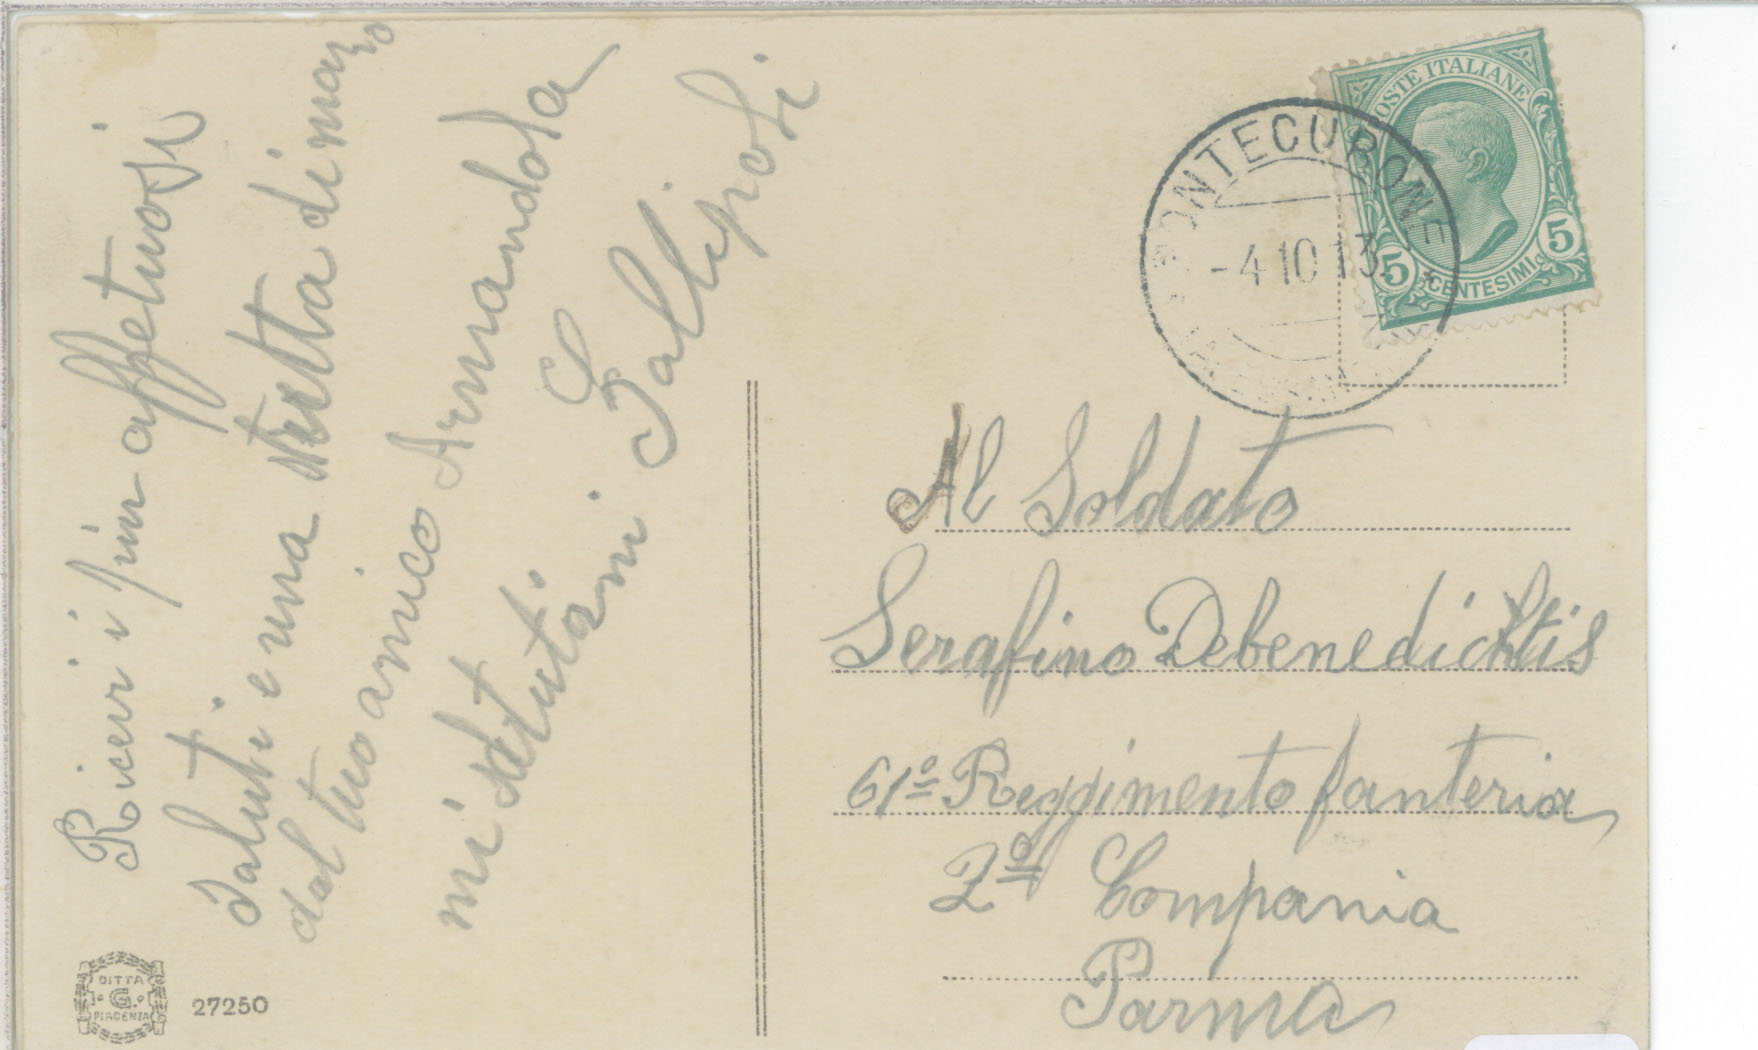 Ricevi i piu affetuosi
Saluti e una stretta di mano
dal tuo amico Armandola
mi saluterai Gallipoli
DITTA
G.
PIACENZA
27250
POSTE ITALIANE
5 5
CENTESIMI
PONTECURONE
-4 10 13
Al Soldato
Serafino Debenedicttis
61º Reggimento fanteria
2ª Compania
Parma